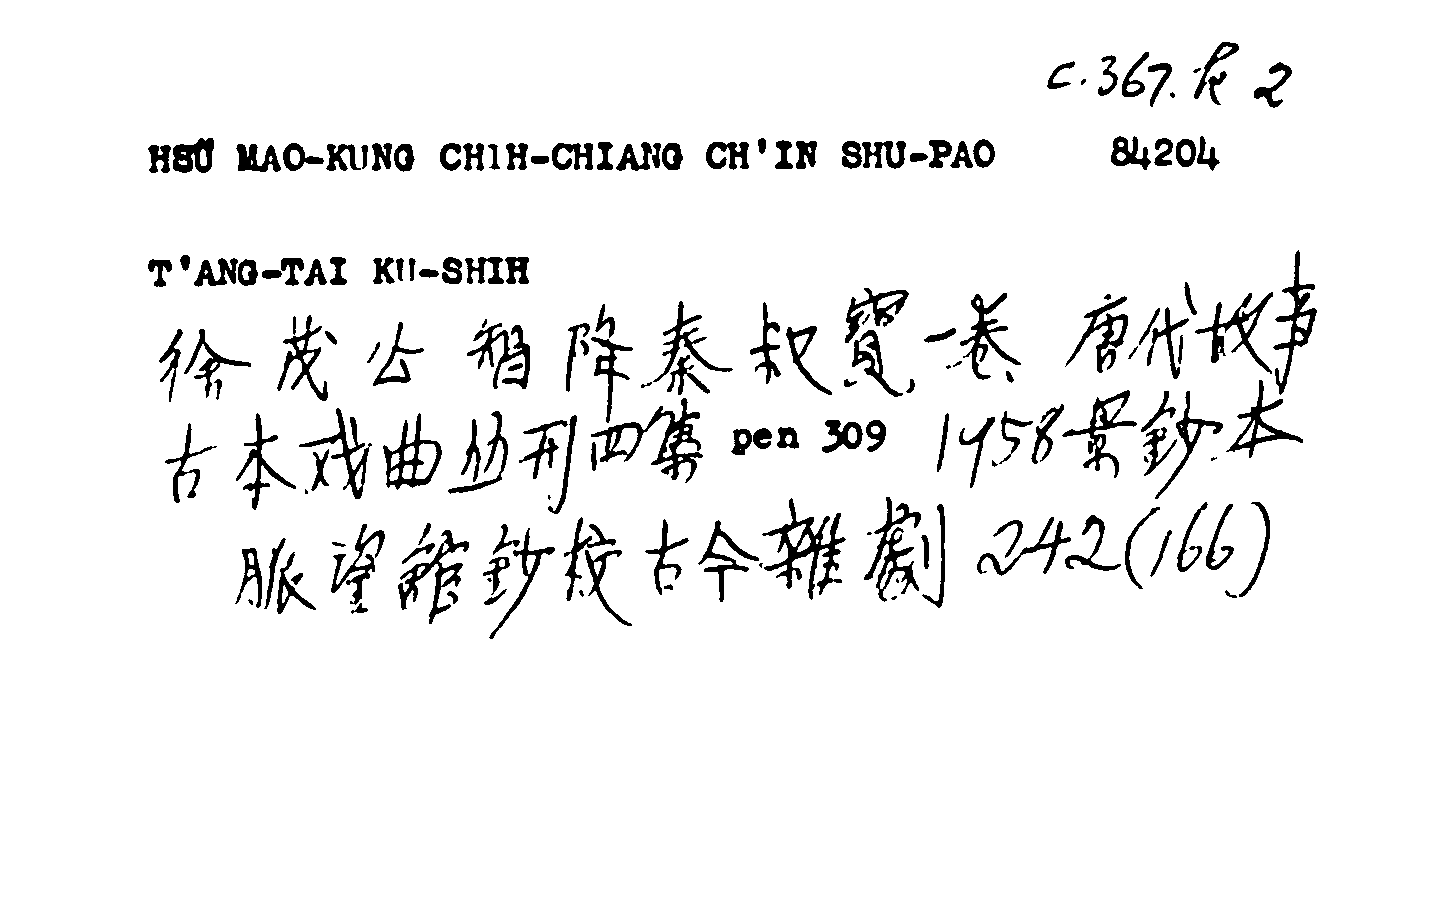 C.367.k 2
HSÜ MAO-KUNG CHIH-CHIANG CH'IN SHU-PAO 84204
T'ANG-TAI KU-SHIH
徐茂公智降秦叔寶一卷 唐代故事
古本戏曲丛刊四集 pen 309 1958景鈔本
脈望館鈔校古今雜劇 242(166)